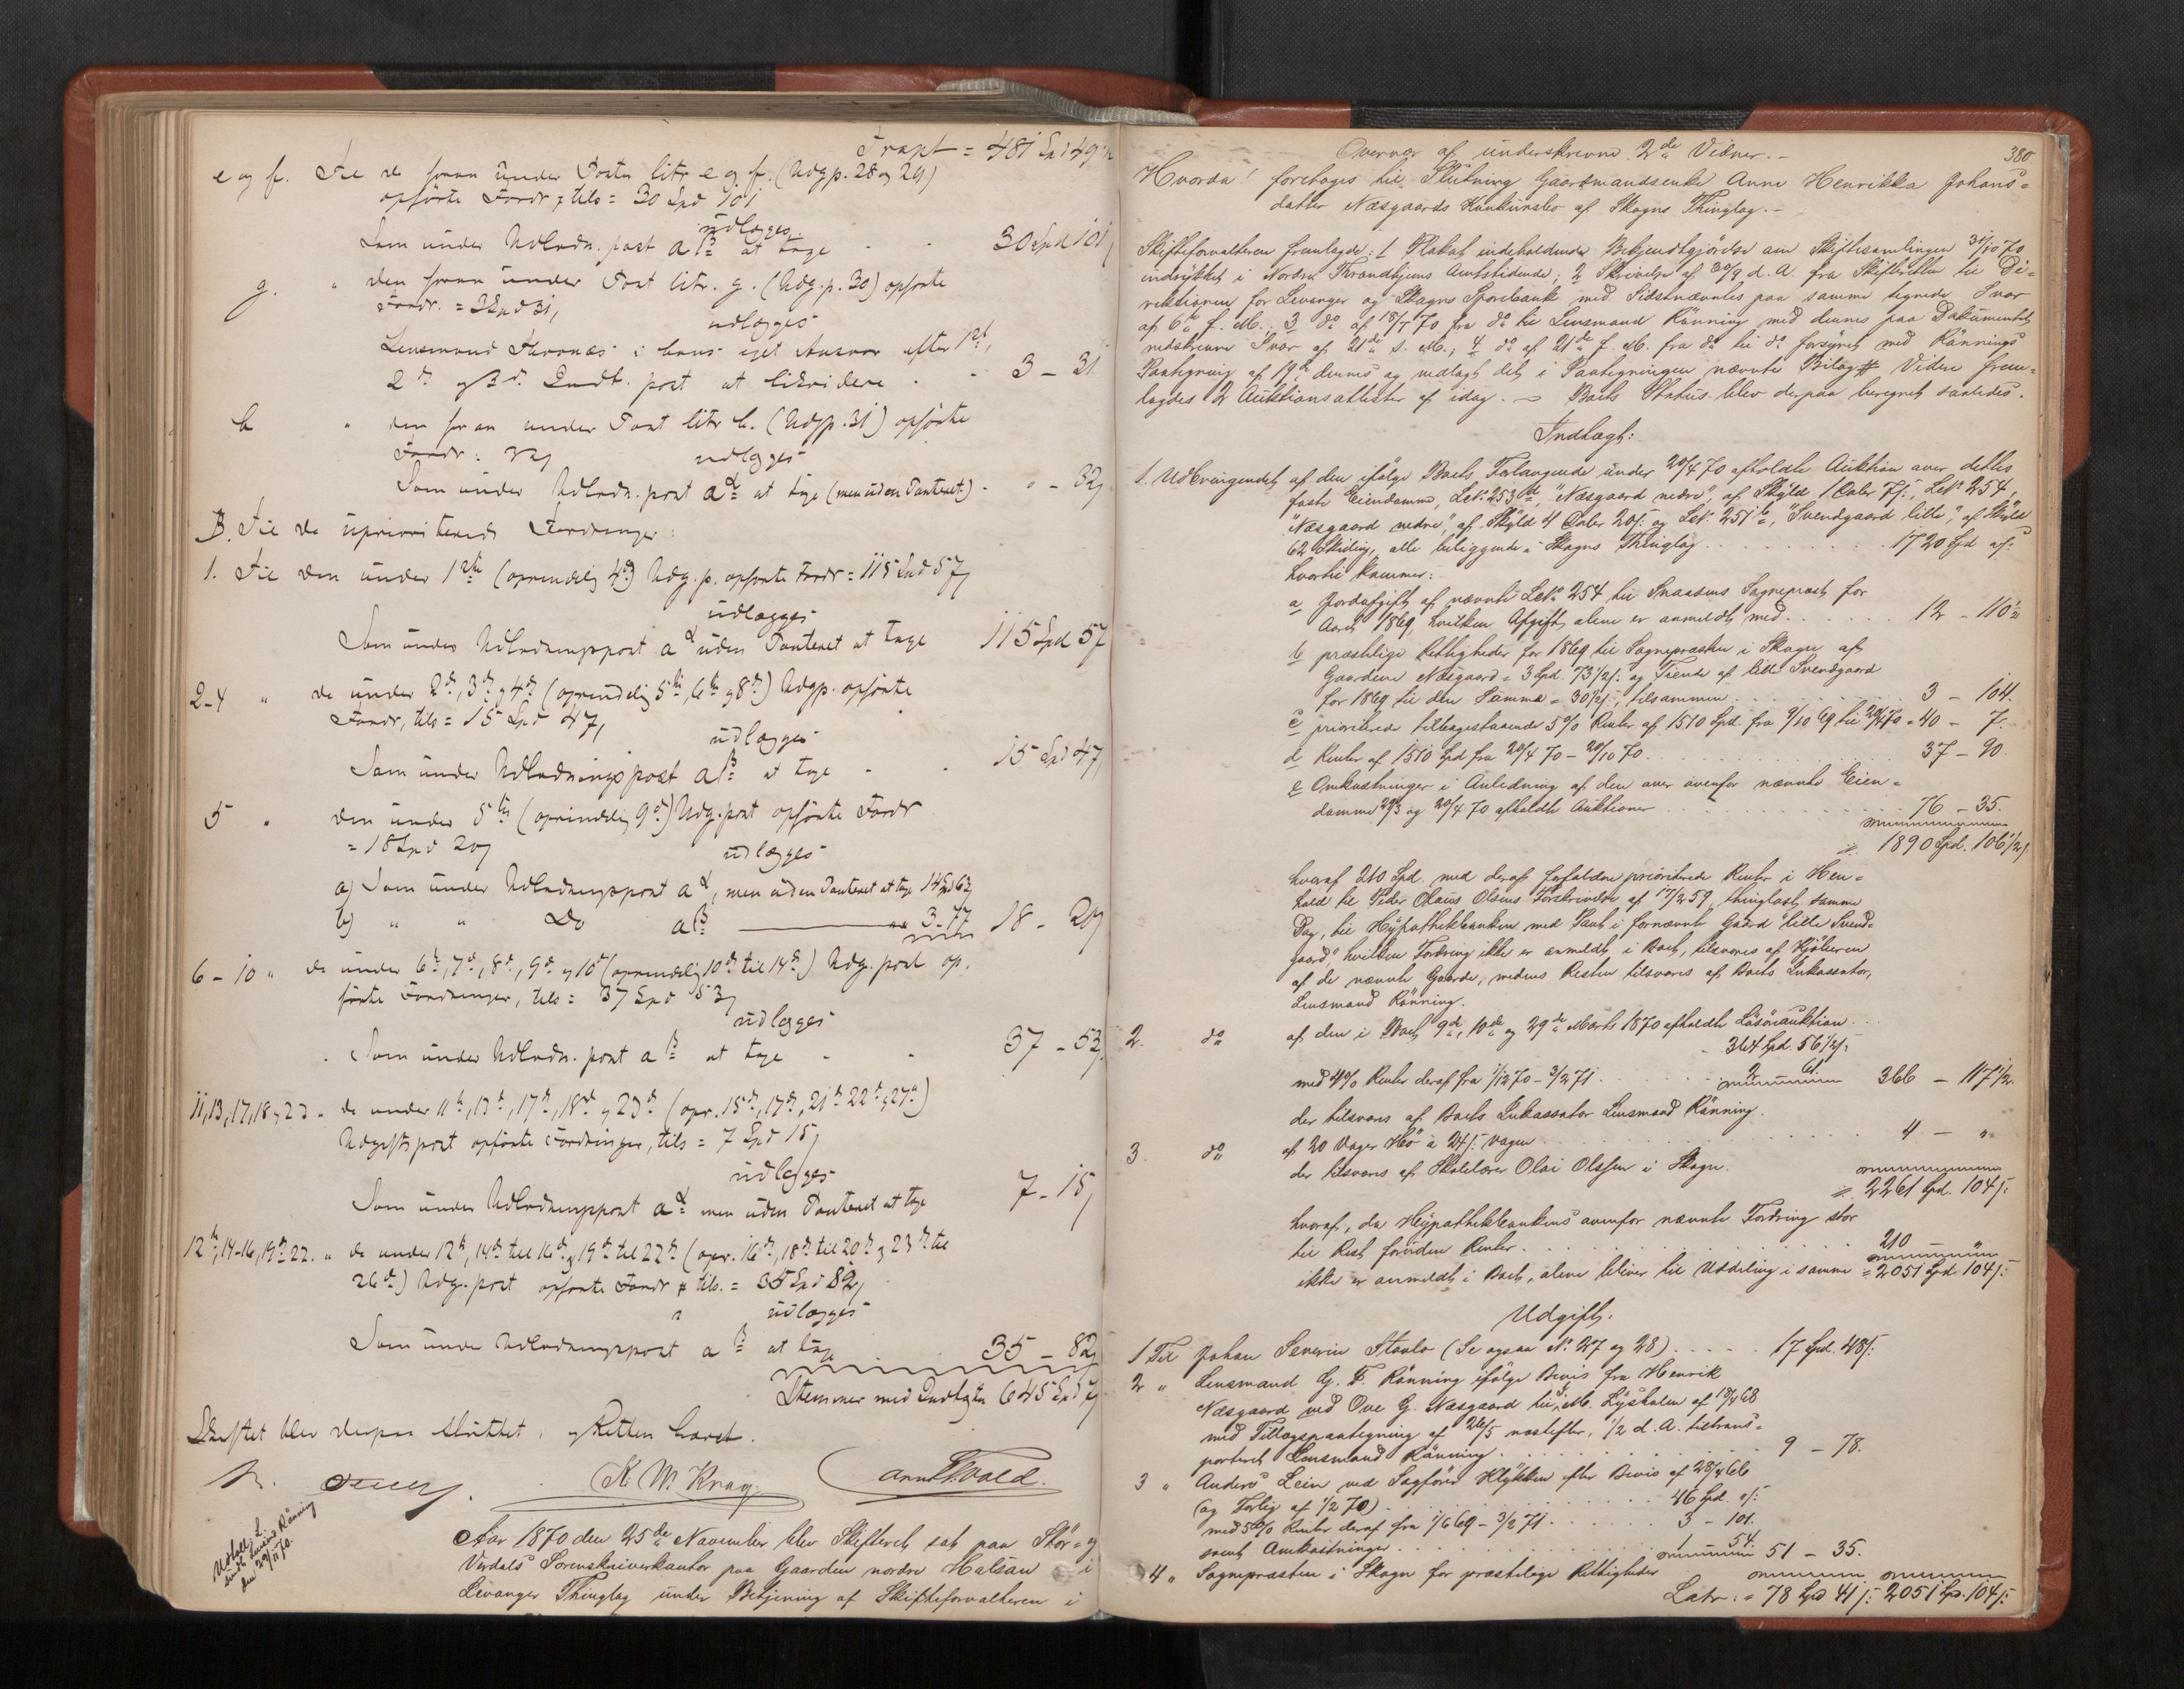 Trspt = 481 Spd 49
e og f. Til de foran under Poster litr e og f. (Udgp. 28 og 29)
opførte Fordr, tils = 30 Spd 101
udlægges
Som under Udlodn. post a β at tage 30 Spd 101
g. " den foran under Post litr. g. (Udg.p. 30) opførte
Fordr. = 3 Spd 31,
udlægges
Lensmand Thronæs i hans eget Ansvar efter 1st,
2d og 3d Indt. post at likvidere 3 - 31
h " den foran under Post litr h. (Udgp. 31) opførte
Fordr: 32
udlægges
Som under Udlodn. post a α at tage (men uden Panteret) " - 32
B. Til de uprioriterede Fordringer:
1. Til den under 1ste (oprindelig 4de) Udg. p. opførte Fordr = 115 Spd 57
udlægges
Som under Udlodningspost a α uden Panteret at tage 115 Spd 57
2-4 " de under 2d, 3d og 4d (oprindelig 5te, 6te og 8de) Udgp. opførte
Fordr, tils = 15 Spd 47,
udlægges
Som under Udlodningspost a β at tage 15 Spd 47
5 " den under 5te (oprindelig 9de) Udg. post opførte Fordr
= 18 Spd 20
udlægges
a) Som under Udlodningspost a α, men uden Panteret at tage 14 Spd 63
b) " " Do a β 3-77 18 - 20
6-10 " de under 6te, 7de, 8de, 9de og 10de (oprindelig 10de til 14de) Udg. post op-
førte Fordringer, tils = 37 Spd 53
udlægges
Som under Udlodn. post a β at tage 37 - 53
11, 13, 17, 18 og 23 " de under 11te, 13de, 17de, 18de og 23de (opr. 15de, 17de, 21de 22de og 27de)
Udgiftspost opførte Fordringer, tils = 7 Spd 15
udlægges
Som under Udlodningspost a α men uden Panteret at tage 7 - 15
12te, 14-16, 19de-22. " de under 12te, 14de til 16de og 19de til 22de (opr. 16de, 18de til 20de og 23de til
26de) Udg. post opførte Fordr tils. = 35 Spd 82
udlægges
Som under Udlodningspost a β at tage 35 - 82
Stemmer med Indtægten 645 Spd
Skiftet blev derpaa sluttet, og Retten hævet.
K. W. Krag. Arnt Wold.
Udtall. L.
sendt Lensmd Rönning
den 29/11 70.
Aar 1870 den 25de November blev Skifteret sat paa Stör- og
Værdals Sorenskriverkontor paa Gaarden nordre Halsan i
Levanger Thinglag under Betjening af Skifteforvalteren i
380.
Overvær af underskrevne 2de Vidner. -
Hvorda! foretoges til Slutning Gaardmandsenke Anne Henrikka Johans=
datter Næsgaards Konkursbo af Skogns Thinglag. -
Skifteforvalteren fremlagde: 1 Plakat indeholdende Bekjendtgjørelse om Skiftesamlingen 31/10 70
indrykket i Nordre Throndhjems Amtstidende; 2 Skrivelse af 30/9 d. A. fra Skifteretten til Di=
rektionen for Levanger og Skogns Sparebank med Sidstnævntes paa samme tegnede Svar
af 6te f. M.; 3 do af 18/ 70 fra do til Lensmand Rönning med dennes paa Dokumentet
nedskrevne Svar af 21de s. M.; 4 do af 21de f. M. fra do til do forsynet med Rönnings
Paategning af 19de dennes og vedlagt det i Paategningen nævnte Bilag. Videre frem=
lagdes 2 Auktionsattester af idag. - Boets Status blev derpaa beregnet saaledes.
Indtægt:
1. Udbringendet af den ifølge Boets Forlangende under 20/4 70 afholdte Auktion over dettes
faste Eiendomme, LNr. 253, "Næsgaard nedre", af Skyld 1 Daler 7 s., LNr. 254,
"Næsgaard nedre", af Skyld 4 Daler 20 s. og LNr. 251 b, "Svendgaard lille", af Skyld
62 Skilling, alle beliggende i Skogns Thinglag 1720 Spd s:
hvortil kommer:
a Jordafgift af nævnte LNr. 254 til Snaasens Sognepræst for
Aaret 1869, hvilken Afgift alene er anmeldt med 12 - 110
b præstelige Rettigheder for 1869 til Sognepræsten i Skogn af
Gaardene Næsgaard = 3 Spd. 73 1/2 s: og Tiende af lille Svendgaard
for 1869 til den Samme = 30 1/2 s:, tilsammen 3 - 104.
c prioriterede tilbagestaaende 5 % Renter af 1510 Spd. fra 9/10 69 til 20/4 70 = 40 - 7.
d Renter af 1510 Spd fra 20/4 70 - 20/10 70 37 - 90.
e Omkostninger i Anledning af den over ovenfor nævnte Eien=
domme 29/3 og 20/4 70 afholdte Auktioner 76 - 35.
1890 Spd. 106 1/2
hvoraf 210 Spd. med deraf forfaldne prioriterede Renter i Hen=
hold til Peder Olaus Olsens Forskrivelse af 17/2 59, thinglæst samme
Dag, til Hypothekbanken med Pant i fornævnte Gaard "lille Svend=
gaard" hvilken Fordring ikke er anmeldt i Boet, tilsvares af Kjøberen
af de nævnte Gaarde, medens Resten tilsvares af Boets Inkassator,
Lensmand Rönning.
2. do af den i Boet 9de, 10de og 29de Marts 1870 afholdte Løsøreauktion
364 Spd. 56 1/2 s:
med 4% Renter deraf fra 1/12 70 - 3/2 71 2 61. 366 - 117 1/2
der tilsvares af Boets Inkassator Lensmand Rönning.
3. do af 20 Voger Hø à 24 s: Vogen 4 - "
der tilsvares af Skolelærer Olai Olsson i Skogn.
2261 Spd. 104 s:
hvoraf, da Hypothekbankens ovenfor nævnte Fordring stor
til Rest foruden Renter 210
ikke er anmeldt i Boet, alene bliver til Uddeling i samme = 2051 Spd 104 s:
Udgift.
1 Til Johan Severin Stavlo (Se ogsaa No. 27 og 28) 17 Spd. 48 s:
2 " Lensmand G. F. Rönning ifølge Bevis fra Henrik
Næsgaard ved Ove G. Næsgaard til M. Lysholm af 18/4 68
med Tillægspaategning af 26/5 næstefter, 1/2 d. A. tiltrans=
porteret Lensmand Rönning 9 - 78.
3 " Anders Lein ved Sagfører Klykken efter Bevis af 28/4 66
(og Forlig af 1/2 70) 46 Spd. s:
med 5% Renter deraf fra 1/6 69 - 3/2 71 3 - 101.
samt Omkostninger 1 54. 51 - 35.
4 " Sognepræsten i Skogn for præstelige Rettigheder
Latr: = 78 Spd 41 s: 2051 Spd. 104 s: